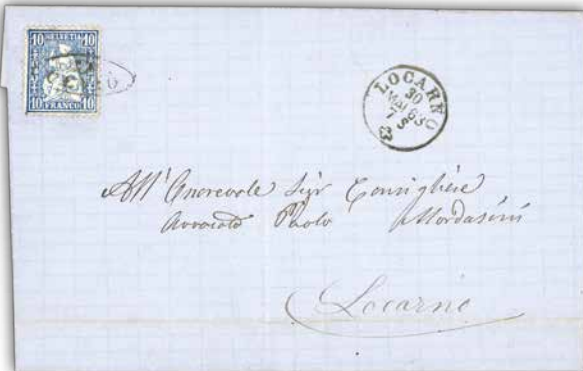 10 HELVETIA 10
10 FRANCO 10
LOCARNO
30
MAI 63
7 S
All' Onorevole Sigr Consigliere
Avvocato Paolo Mordasini
Locarno